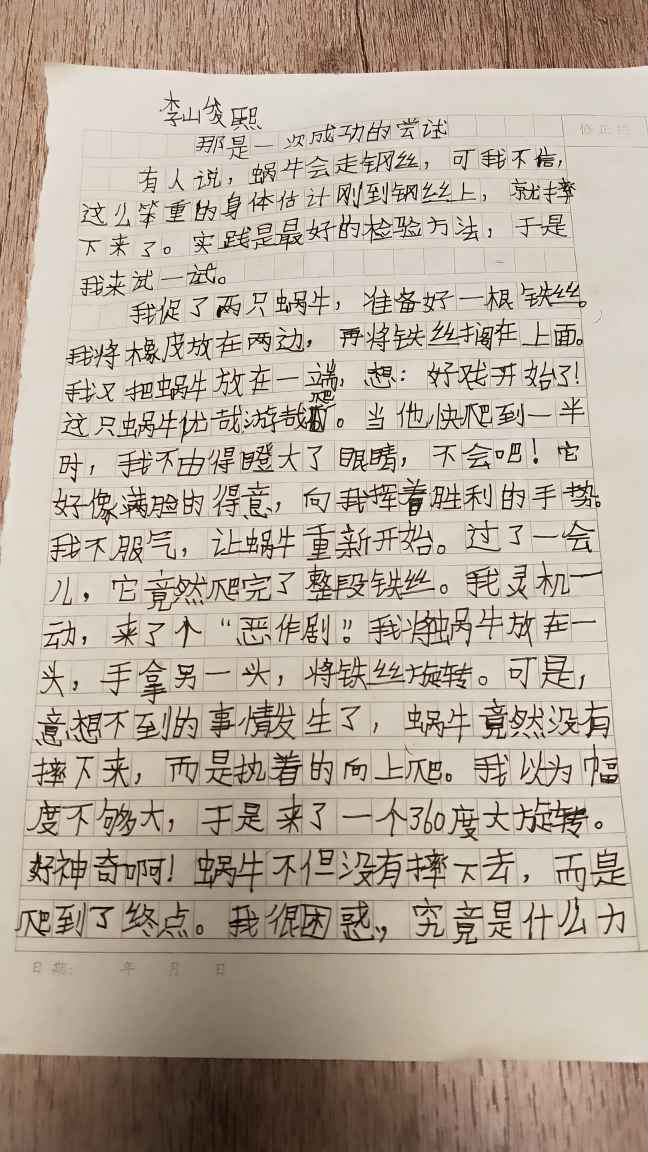 李峻熙
那是一次成功的尝试
修正栏
有人说，蜗牛会走钢丝，可我不信，
这么笨重的身体估计刚到钢丝上，就摔
下来了。实践是最好的检验方法，于是
我来试一试。
我促了两只蜗牛，准备好一根铁丝。
我将橡皮放在两边，再将铁丝搁在上面。
我又把蜗牛放在一端，想：好戏开始了！
这只蜗牛优哉游哉爬。当他快爬到一半
时，我不由得瞪大了眼睛，不会吧！它
好像满脸的得意，向我挥着胜利的手势。
我不服气，让蜗牛重新开始。过了一会
儿，它竟然爬完了整段铁丝。我灵机一
动，来了个“恶作剧”。我将蜗牛放在一
头，手拿另一头，将铁丝旋转。可是，
意想不到的事情发生了，蜗牛竟然没有
摔下来，而是执着的向上爬。我以为幅
度不够大，于是来了一个360度大旋转。
好神奇啊！蜗牛不但没有摔下去，而是
爬到了终点。我很困惑，究竟是什么力
日期： 年 月 日